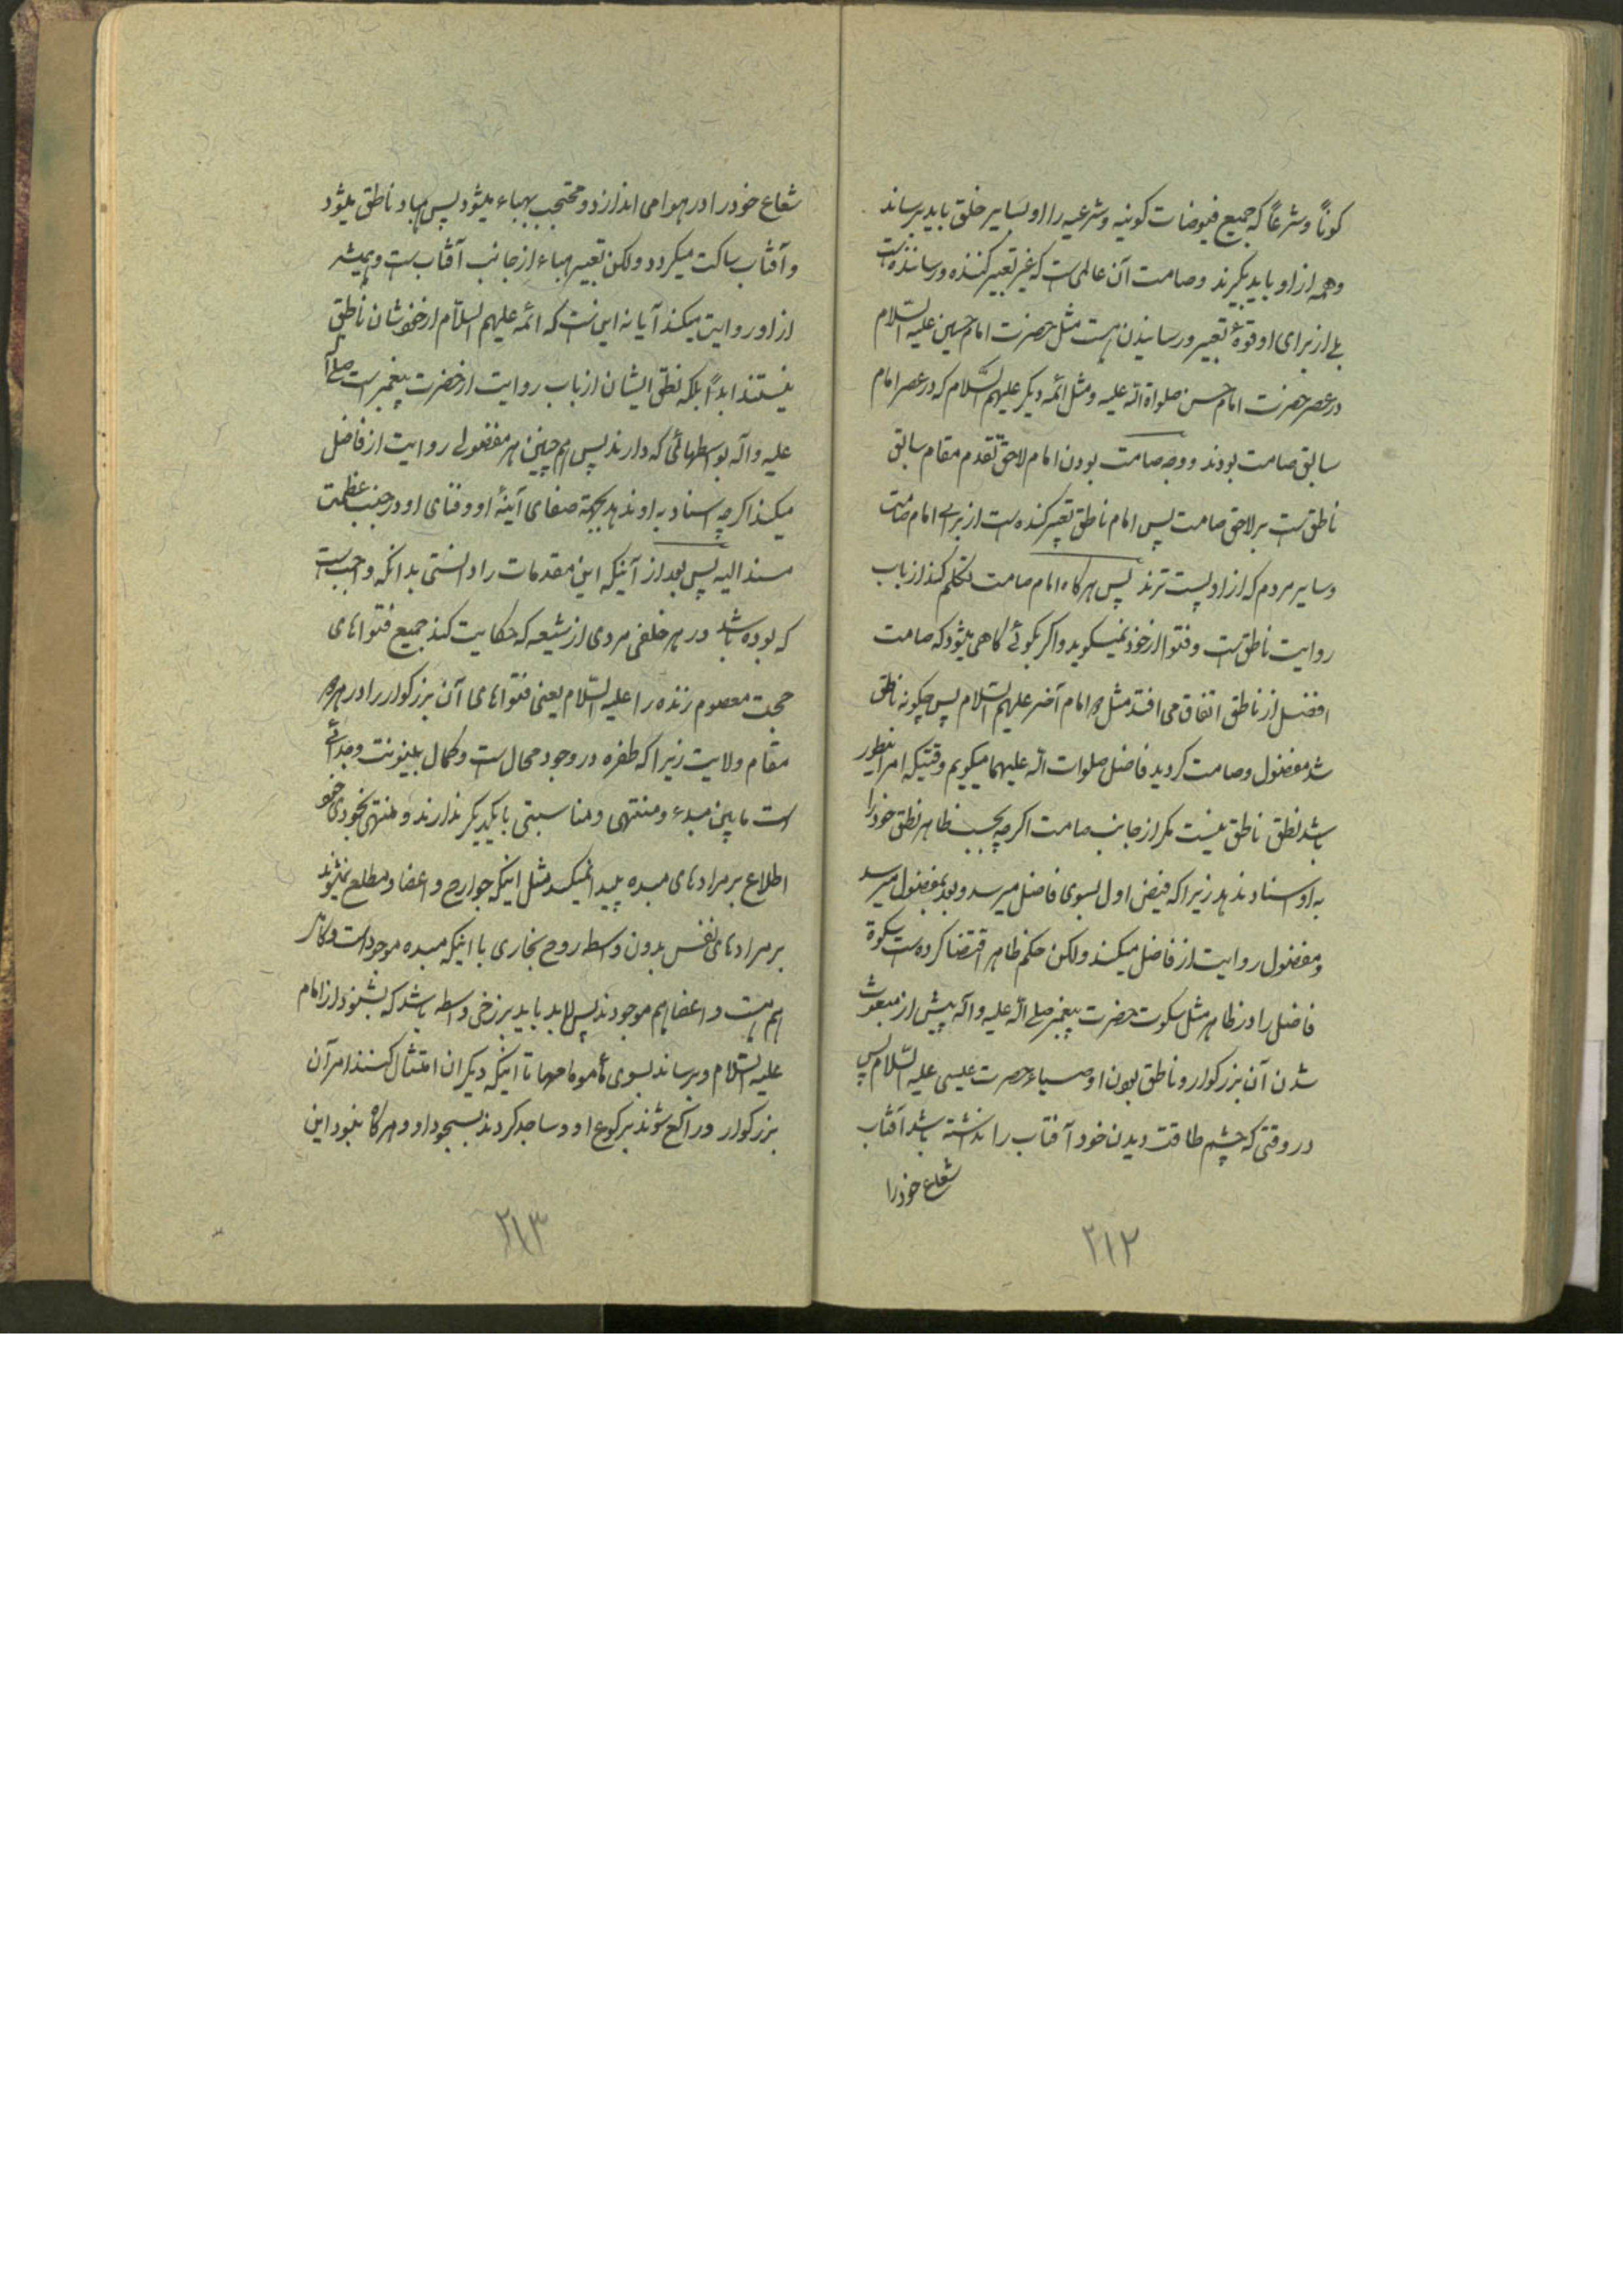 کوناً و شرعاً که جمیع فیوضات کونیه و شرعیه را او بسایر خلق باید برساند
و همه از او باید بگیرند و صامت آن عالمی است که غیر تعبیر کننده و رساننده است
بلی از برای او قوهٔ تعبیر و رسانیدن هست مثل حضرت امام حسین علیه السلام
در عصر حضرت امام حسن صلواة الله علیه و مثل ائمه دیگر علیهم السّلام که در عصر امام
سابق صامت بودند و وجه صامت بودن امام لاحق تقدم مقام سابق
ناطق است بر لاحق صامت پس امام ناطق تعبیر کننده است از برای امام صامت
و سایر مردم که از او پست ترند پس هر کاه امام صامت تکلم کند از باب
روایت ناطق است و فتوا از خود نمیکوید و اکر بکوئی کاهی میشود که صامت
افضل از ناطق اتفاق می افتد مثل امام آخر علیهم السلام پس چکونه ناطق
شد مفضول و صامت کردید فاضل صلوات الله علیهما میکوییم وقتیکه امر اینطور
باشد نطق ناطق نیست مکر از جانب صامت اکرچه بحسب ظاهر نطق خود را
به او اسناد ندهد زیرا که فیض اول بسوی فاضل میرسد و بعد بمفضول میرسد
و مفضول روایت از فاضل میکند ولکن حکم ظاهر اقتضا کرده است سکوة
فاضل را در ظاهر مثل سکوت حضرت پیغمبر صلی الله علیه و آله پیش از مبعوث
شدن آن بزرکوار و ناطق بودن اوصیاء حضرت عیسی علیه السّلام پس
در وقتی که چشم طاقت دیدن خود آفتاب را نداشته باشد آفتاب
شعاع خود را
۲۱۲
شعاع خود را در هوا می اندازد و محتجب بهباء میشود پس هباء ناطق میشود
و آفتاب ساکت میکردد ولکن تعبیر هباء از جانب آفتاب است و همیشه
از او روایت میکند آیا نه این است که ائمه علیهم السلام از خودشان ناطق
نیستند ابداً بلکه نطق ایشان از باب روایت از حضرت پیغمبر است صلی الله
علیه و آله بواسطهائی که دارند پس هم چنین هر مفضولی روایت از فاضل
میکند اکرچه اسناد به او ندهد بجهة صفای آینهٔ او و فنای او در جنب عظمت
مسند الیه پس بعد از آنیکه این مقدمات را دانستی بدانکه واجب است
که بوده باشد در هر خلفی مردی از شیعه که حکایت کند جمیع فتواهای
حجت معصوم زنده را علیه السّلام یعنی فتواهای آن بزرکوار را در هر
مقام ولایت زیرا که طفره در وجود محال است و کمال بینونت و جدائی
است مابین مبدء و منتهی و مناسبتی با یکدیگر ندارند و منتهی بخودی خود
اطلاع بر مرادهای مبدء پیدا نمیکند مثل اینکه جوارح و اعضاء مطلع نمیشوند
بر مرادهای نفس بدون واسطه روح بخاری با اینکه مبدء موجود است
هم هست و اعضا هم موجودند پس لابد باید برزخی واسطه باشد که بشنود از امام
علیه السّلام و برساند بسوی مأمومها تا اینکه دیکران امتثال کنند امر آن
بزرکوار و راکع شوند برکوع او و ساجد کردند بسجود او و هر کاه نبود این
۲۱۳